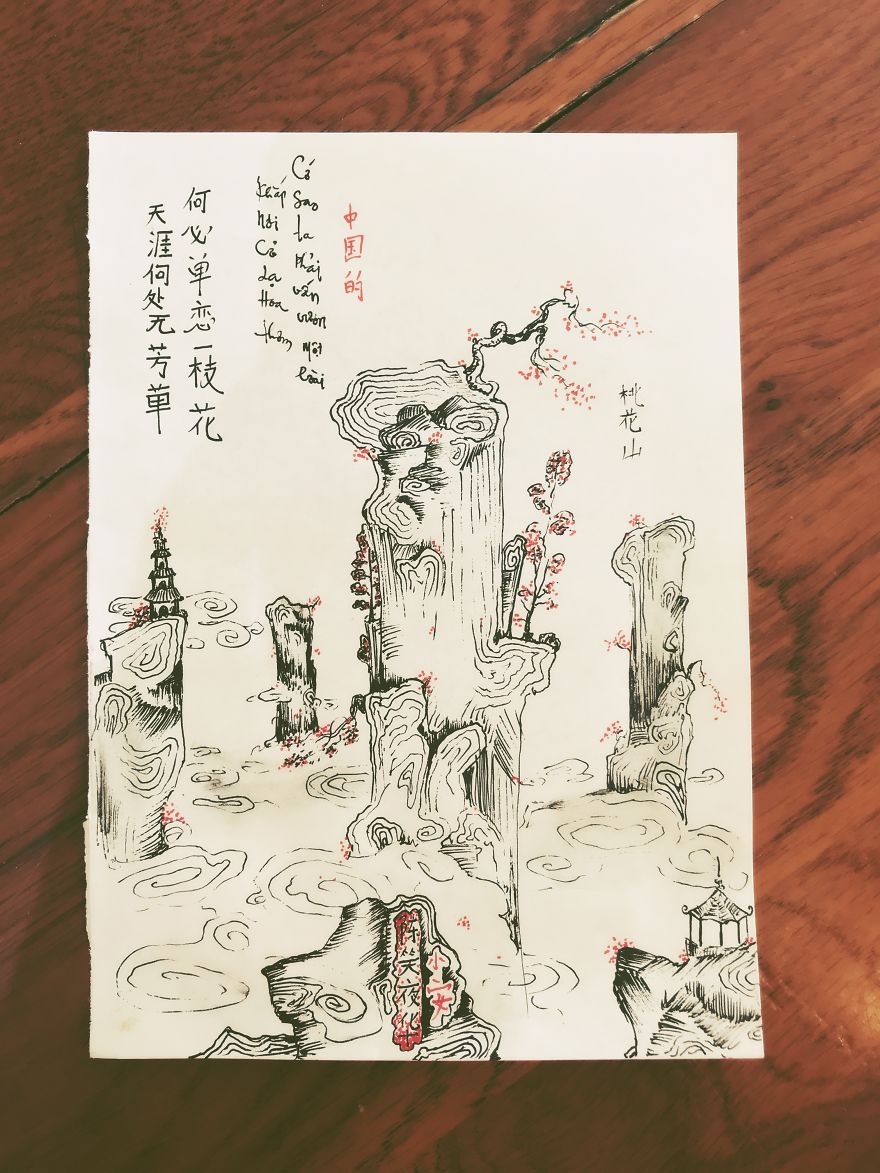 中国的
Cớ Sao ta Phải vấn vương Một loài
khắp Nơi Cỏ lạ Hoa thơm
何必单恋一枝花
天涯何处无芳草
桃花山
小安